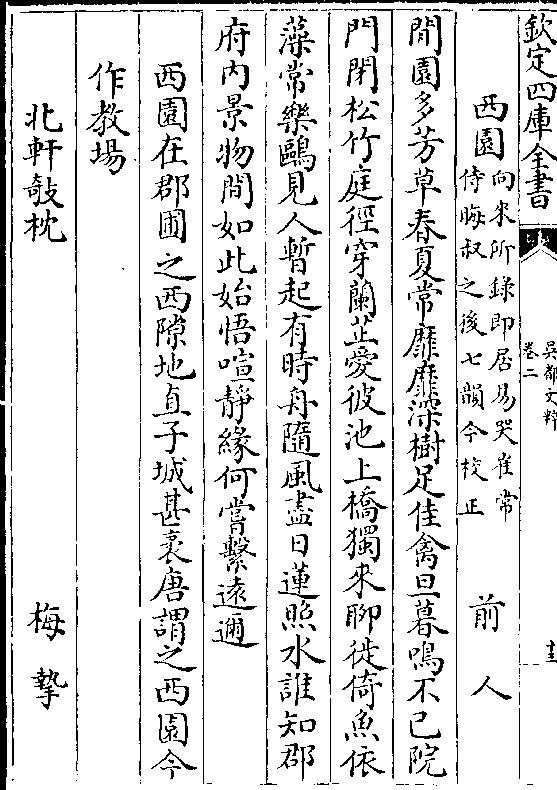 欽定四庫全書
吳都文粹
卷二
西園向來所錄即居易哭崔常
侍晦叔之後七韻今校正
前人
閒園多芳草春夏常靡靡深樹足佳禽旦暮鳴不已院
門閉松竹庭徑穿蘭芷愛彼池上橋獨來聊徙倚魚依
藻常樂鷗見人暫起有時舟隨風盡日蓮照水誰知郡
府内景物閒如此始悟喧靜緣何嘗繫遠邇
西園在郡圃之西隙地直子城甚袤唐謂之西園今
作教場
北軒欹枕
梅摯